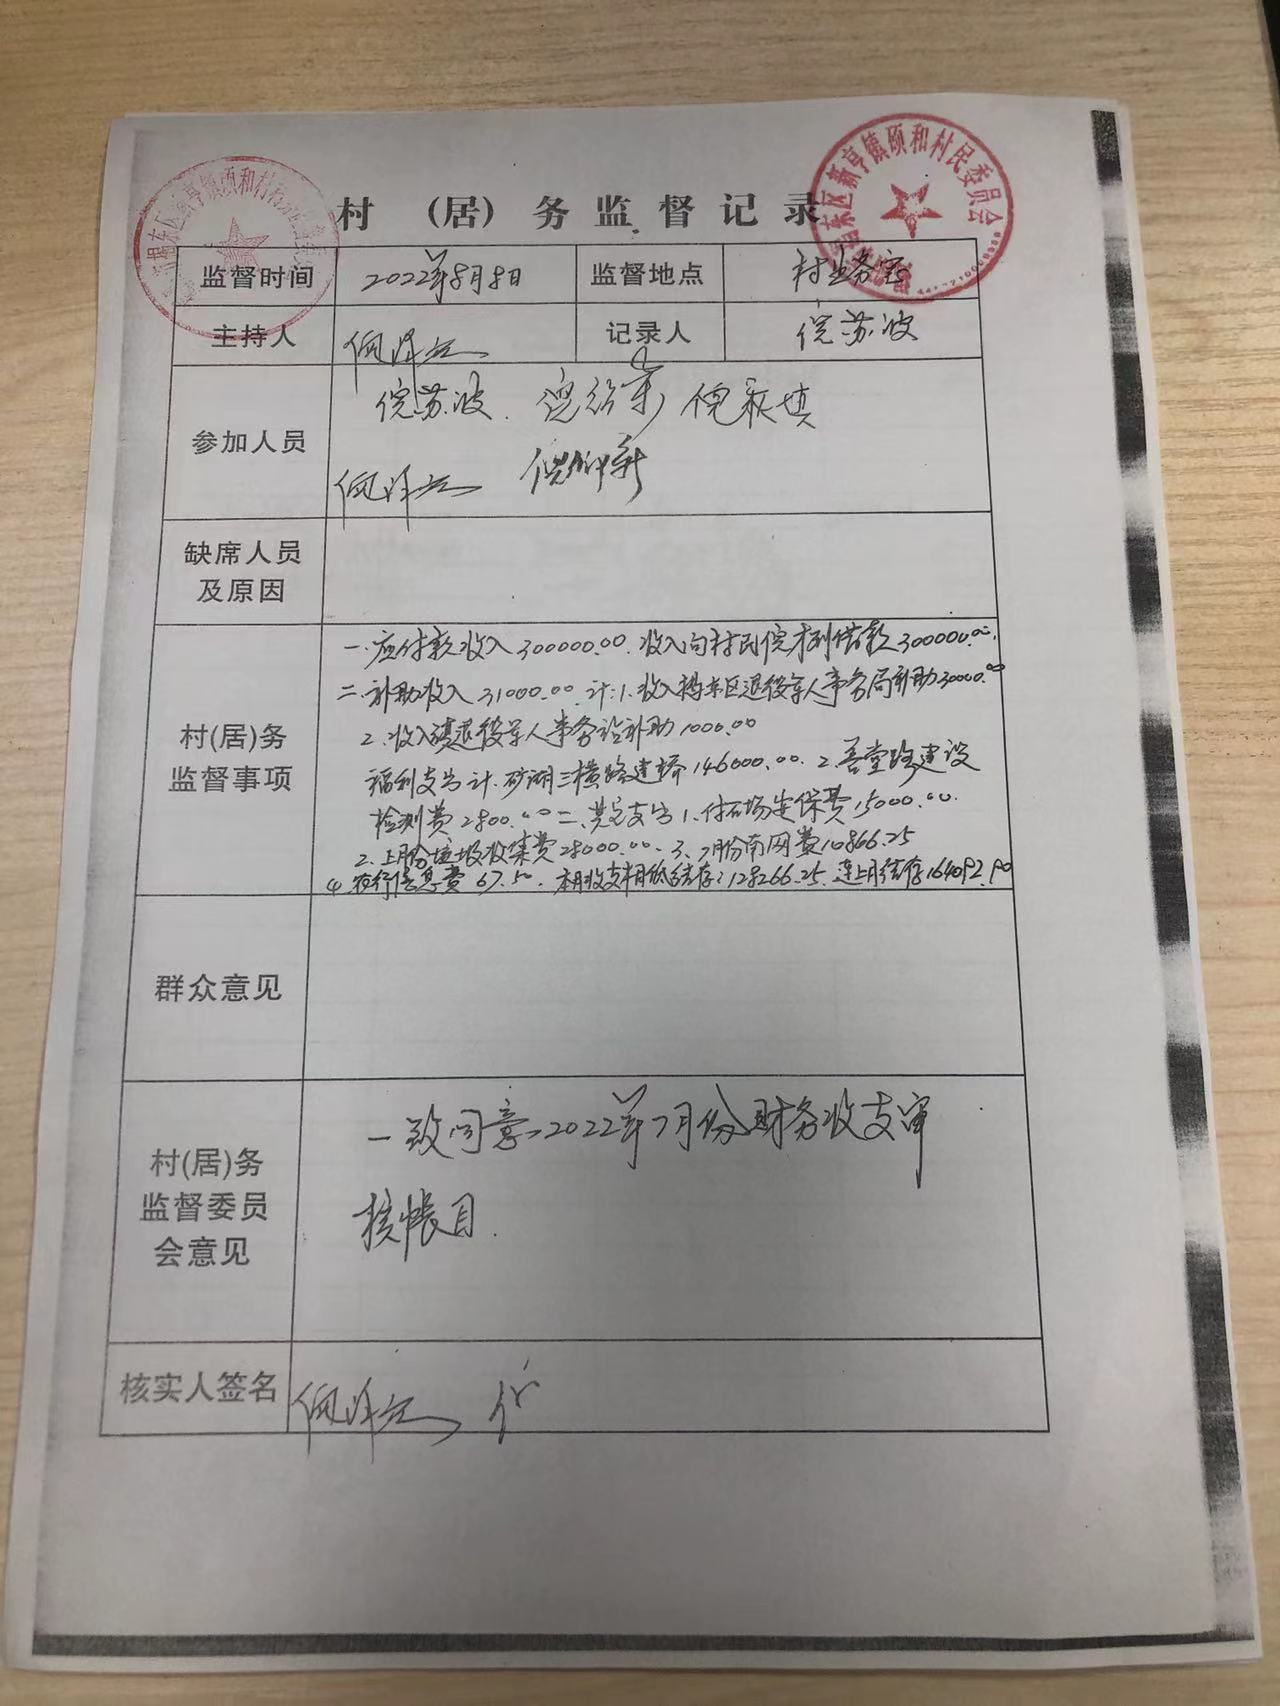 村 (居) 务 监 督 记 录
监督时间 2022年8月8日 监督地点 村业务室
主持人 记录人 倪苏波
参加人员 倪苏波.
缺席人员
及原因
村(居)务
监督事项
一.应付款收入300000.00.收入向村民倪 借款300000.00.
二.补助收入31000.00.计:1.收入揭东区退役军人事务局补助30000.00
2.收入镇退役军人事务站补助1000.00
福利支出计. 湖三横路建桥146000.00.2.善堂路建设
检测费2800.00二.其它支出1.付石场安保费15000.00.
2.上月份垃圾收集费28000.00.3.7月份南网费10866.25
4. 信息费67.50.本月收支 结存:128266.25.连上月结存164092.90
群众意见
村(居)务
监督委员
会意见
一致同意2022年7月份财务收支审
核帐目.
核实人签名
区新亨镇硕和村
东区新亨镇硕和村民委员会